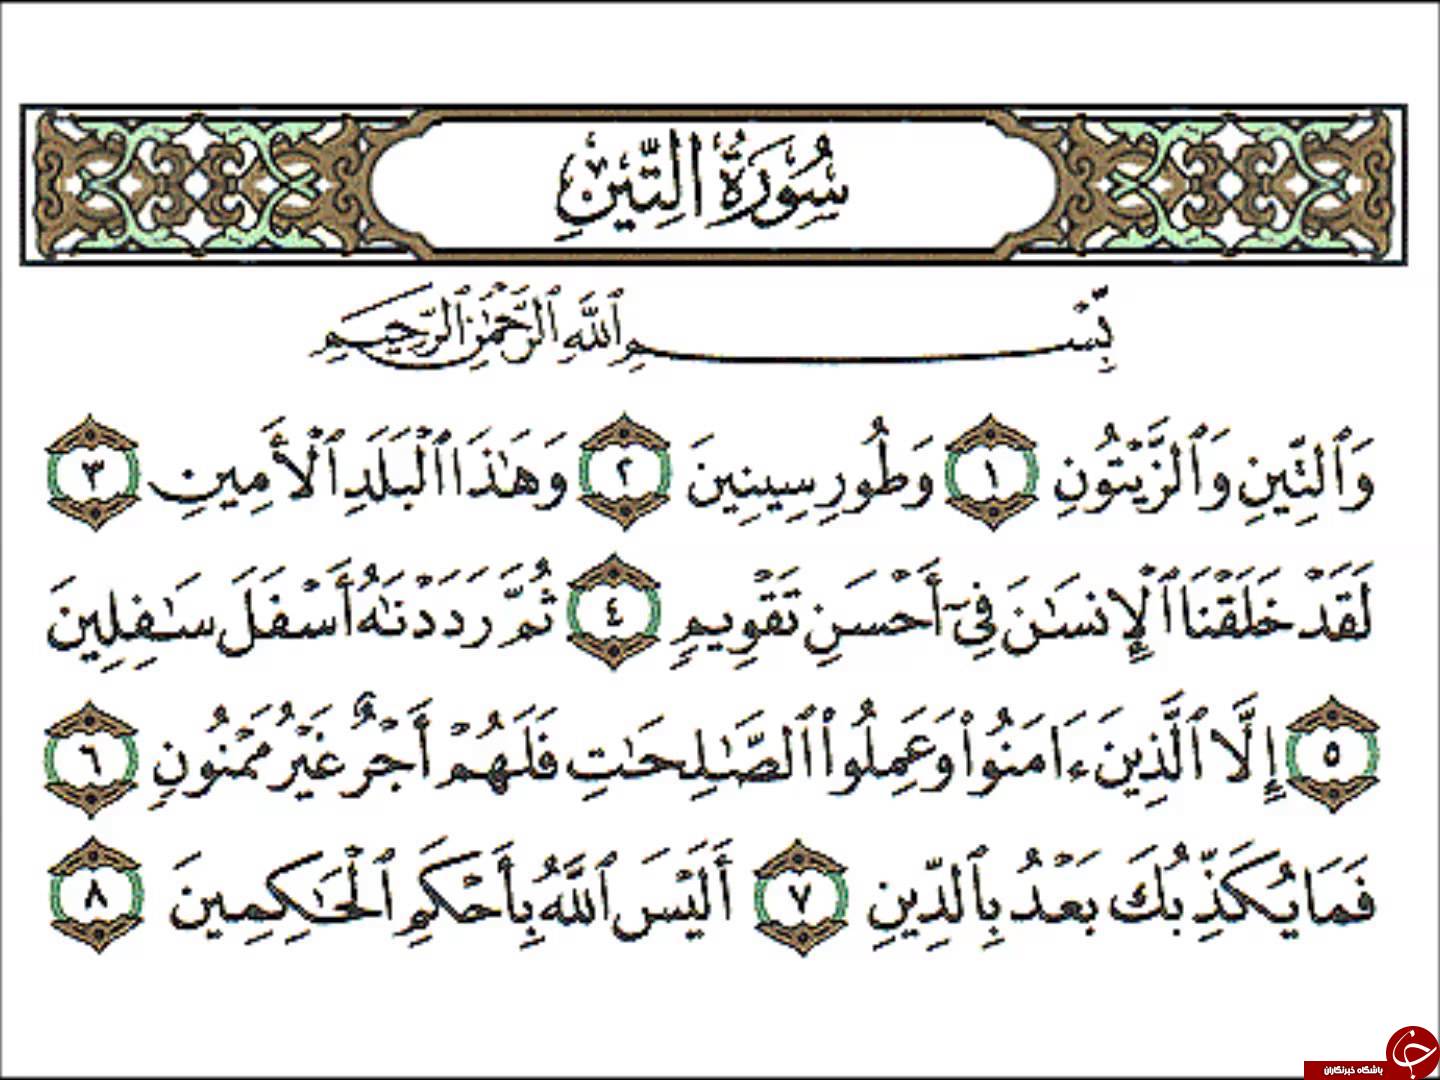 سُورَةُ التِّينِ
بِّسْمِ ٱللَّهِ ٱلرَّحْمَٰنِ ٱلرَّحِيمِ
وَٱلتِّينِ وَٱلزَّيْتُونِ ١ وَطُورِ سِينِينَ ٢ وَهَٰذَا ٱلْبَلَدِ ٱلْأَمِينِ ٣
لَقَدْ خَلَقْنَا ٱلْإِنسَٰنَ فِىٓ أَحْسَنِ تَقْوِيمٍ ٤ ثُمَّ رَدَدْنَٰهُ أَسْفَلَ سَٰفِلِينَ
٥ إِلَّا ٱلَّذِينَ ءَامَنُوا۟ وَعَمِلُوا۟ ٱلصَّٰلِحَٰتِ فَلَهُمْ أَجْرٌ غَيْرُ مَمْنُونٍ ٦
فَمَا يُكَذِّبُكَ بَعْدُ بِٱلدِّينِ ٧ أَلَيْسَ ٱللَّهُ بِأَحْكَمِ ٱلْحَٰكِمِينَ ٨
باشگاه خبرنگاران